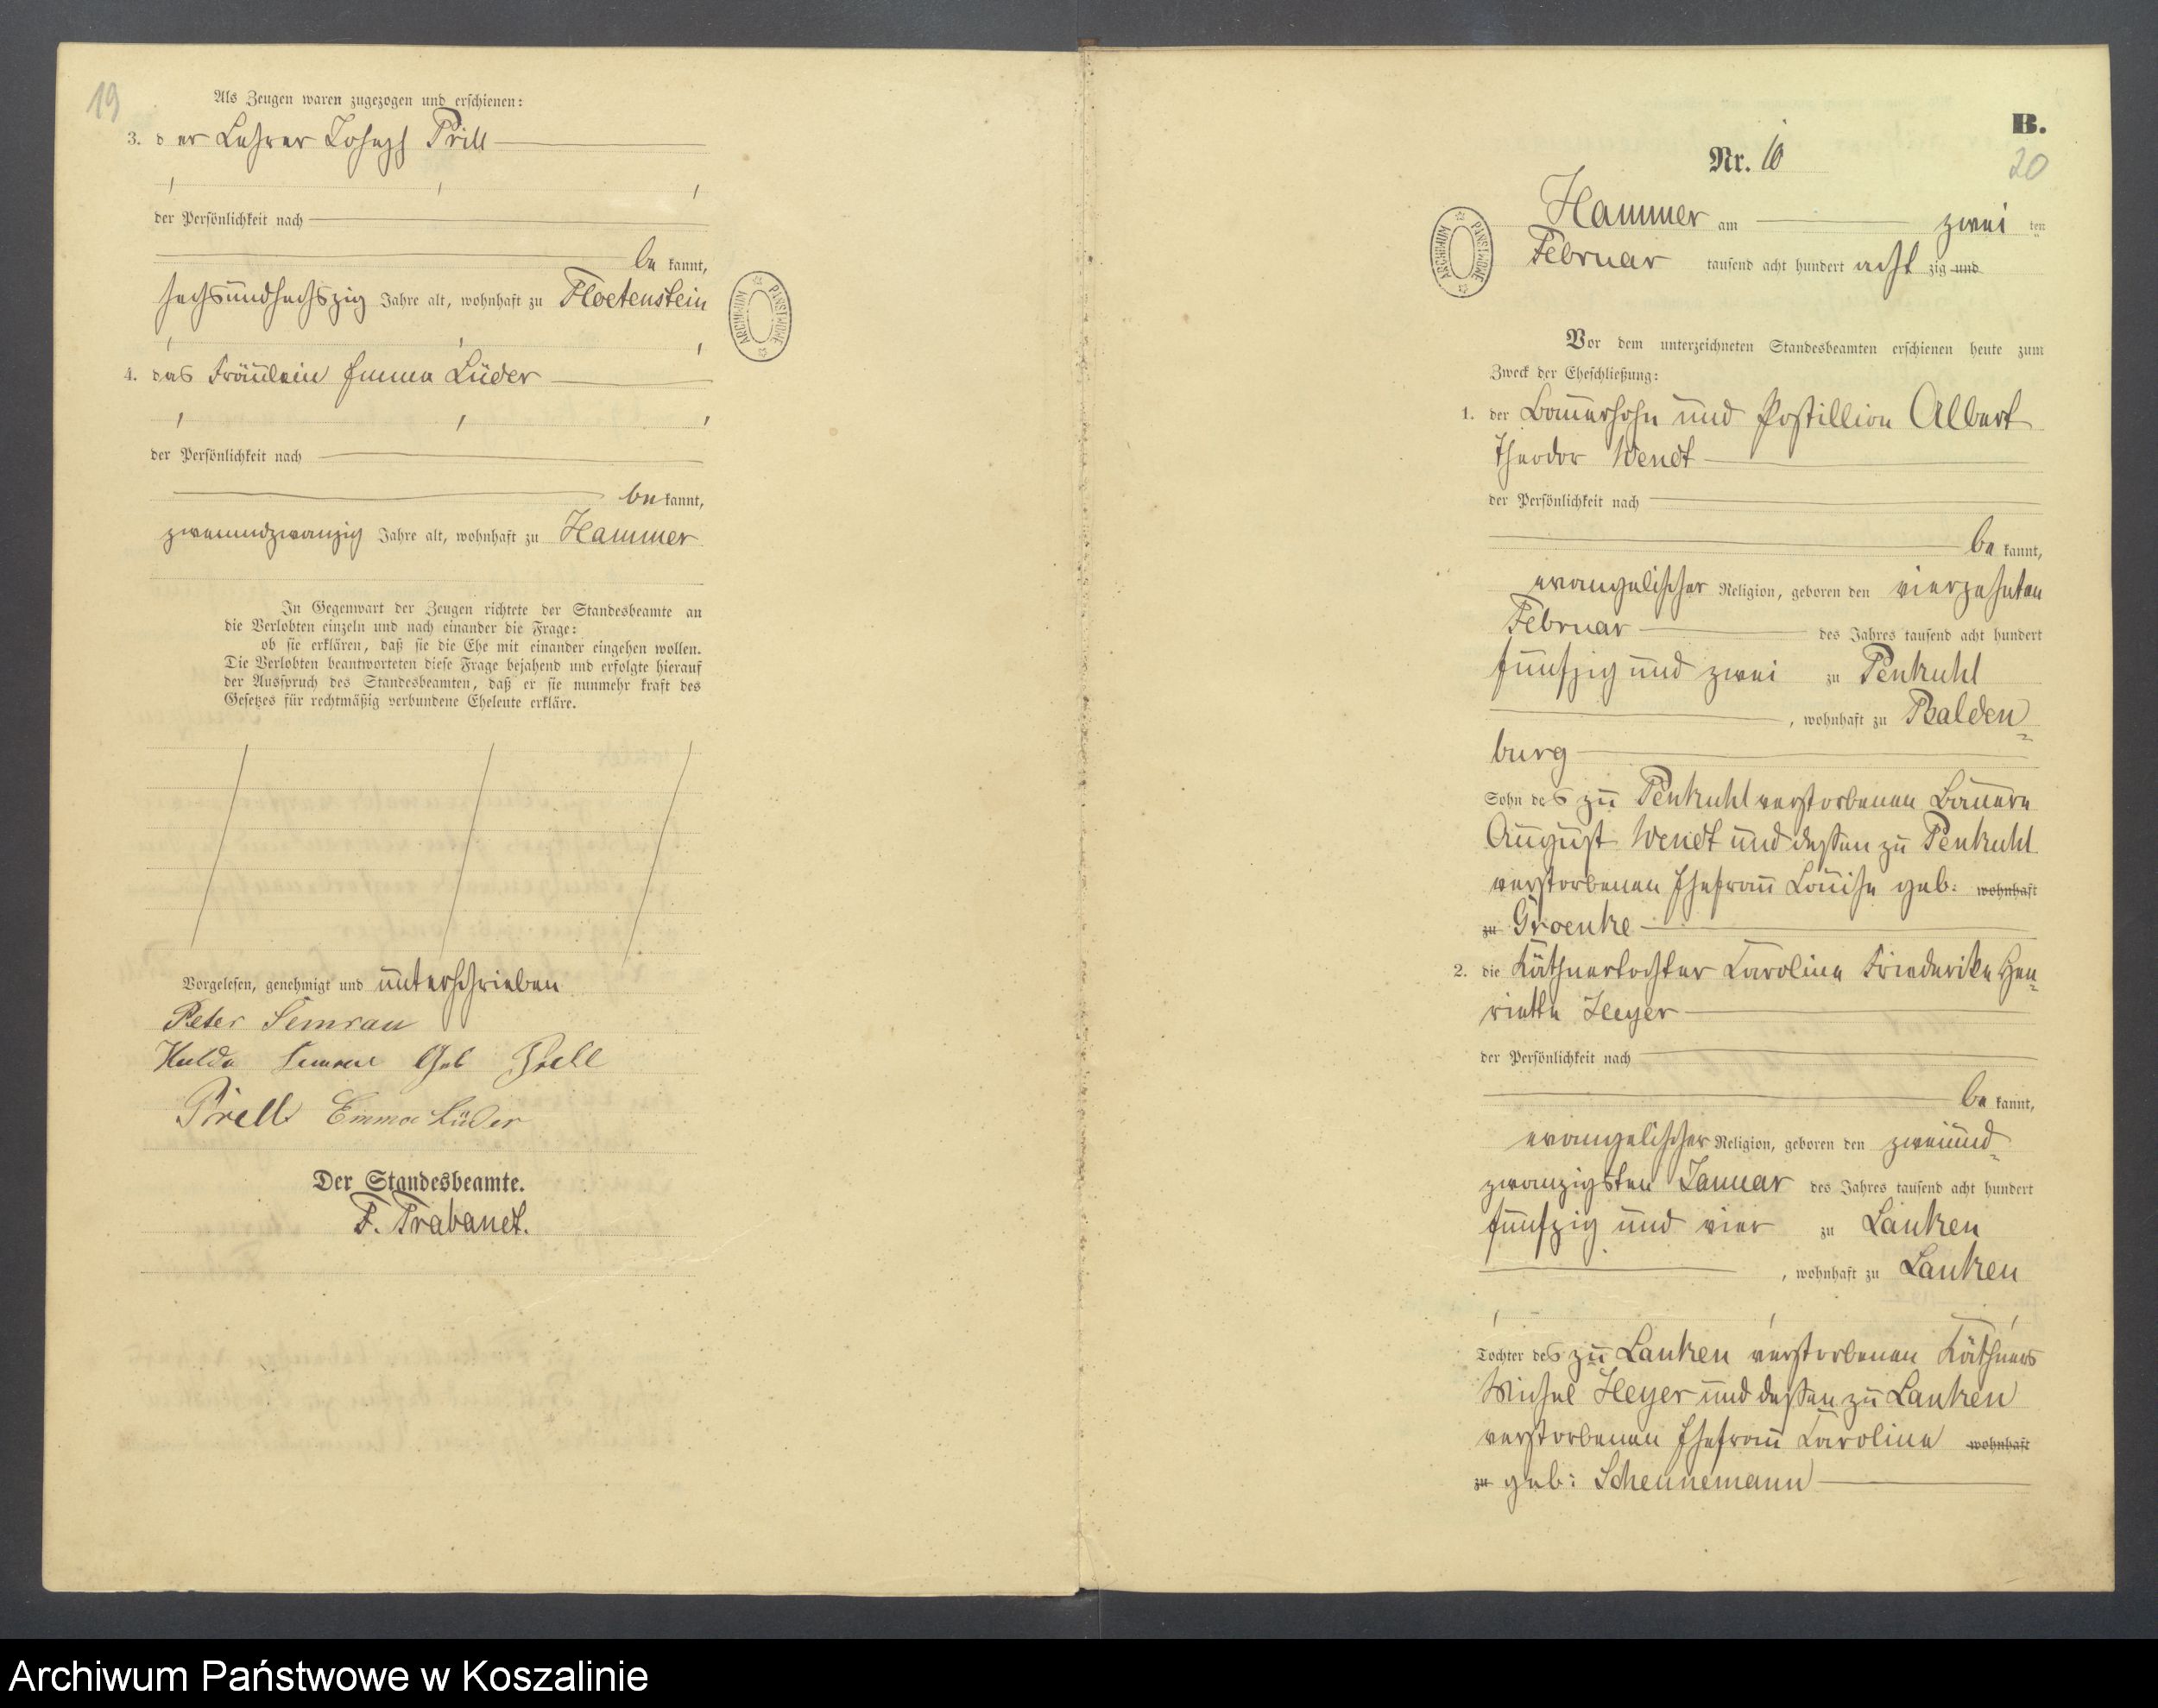 19
Als Zeugen waren zugezogen und erschienen:
3. der Lehrer Joseph Prill
der Persönlichkeit nach
be kannt,
sechsundsechszig Jahre alt, wohnhaft zu Floetenstein
4. das Fräulein Emma Lüder
der Persönlichkeit nach
be kannt,
zweiundzwanzig Jahre alt, wohnhaft zu Hammer
In Gegenwart der Zeugen richtete der Standesbeamte an
die Verlobten einzeln und nach einander die Frage:
ob sie erklären, daß sie die Ehe mit einander eingehen wollen.
Die Verlobten beantworteten diese Frage bejahend und erfolgte hierauf
der Ausspruch des Standesbeamten, daß er sie nunmehr kraft des
Gesetzes für rechtmäßig verbundene Eheleute erkläre.
Vorgelesen, genehmigt und unterschrieben
Peter Semrau
Hulda Semrau Geb Prill
Prill Emma Lüder
Der Standesbeamte.
F. Trabandt.
ARCHIWUM PAŃSTWOWE
B.
Nr. 10
20
Hammer am zwei ten
Februar tausend acht hundert acht zig und
ARCHIWUM PAŃSTWOWE
Vor dem unterzeichneten Standesbeamten erschienen heute zum
Zweck der Eheschließung:
1. der Bauersohn und Postillion Albert
Theodor Wendt
der Persönlichkeit nach
be kannt,
evangelischer Religion, geboren den vierzehnten
Februar des Jahres tausend acht hundert
fünfzig und zwei zu Penkuhl
, wohnhaft zu Balden=
burg
Sohn des zu Penkuhl verstorbenen Bauern
August Wendt und dessen zu Penkuhl
verstorbenen Ehefrau Louise geb: wohnhaft
zu Groenke
2. die Käthnertochter Caroline Friederike Hen=
riette Heyer
der Persönlichkeit nach
be kannt,
evangelischer Religion, geboren den zweiund=
zwanzigsten Januar des Jahres tausend acht hundert
fünfzig und vier zu Lanken
, wohnhaft zu Lanken
Tochter des zu Lanken verstorbenen Käthners
Michel Heyer und dessen zu Lanken
verstorbenen Ehefrau Caroline wohnhaft
zu geb: Schennemann
Archiwum Państwowe w Koszalinie